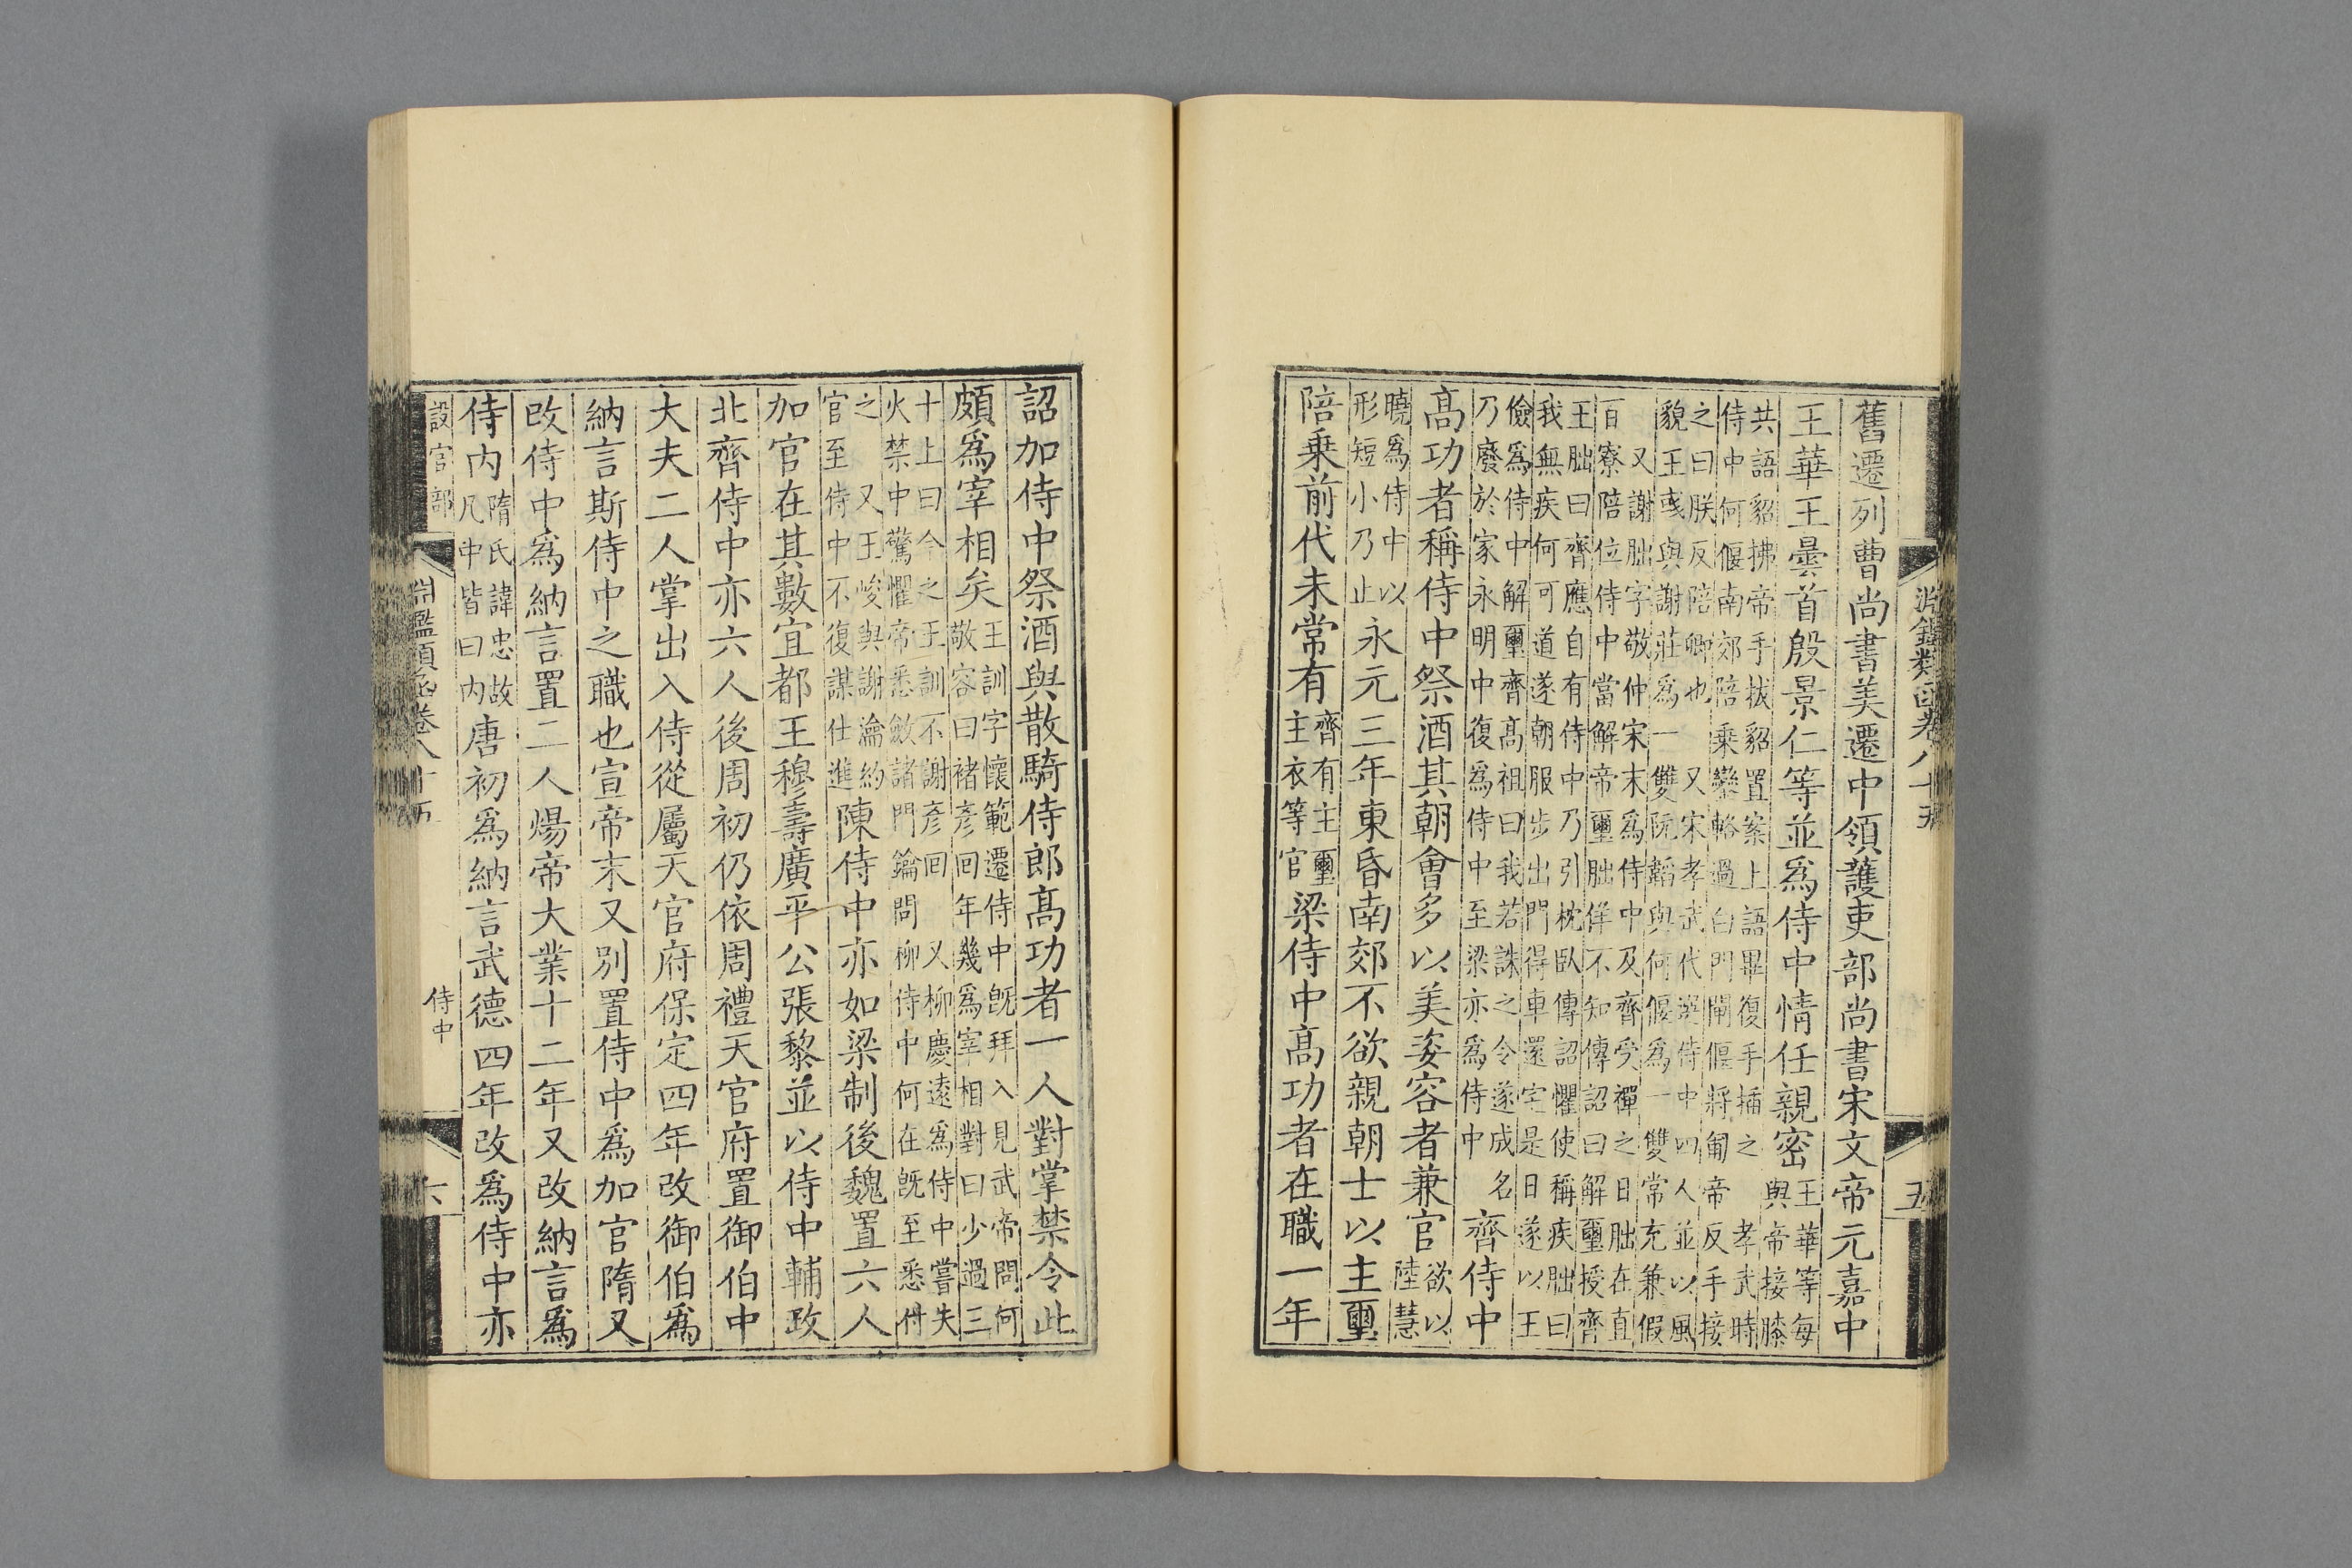 淵鑑類函卷八十五 五
舊遷列曹尚書美遷中領護吏部尚書宋文帝元嘉中
王華王曇首殷景仁等並爲侍中情任親密
王華等每
與帝接膝
共語貂拂帝手拔貂置案上語畢復手插之 孝武時
侍中何偃南郊陪乗鑾輅過白門闡偃將匐帝反手接
之曰朕反陪卿也 又宋孝武代選侍中四人並以風
貌王彧與謝莊爲一雙阮韜與何偃爲一雙常充兼假
又謝朏字敬仲宋末爲侍中及齊受禪之日朏在直
百寮陪位侍中當解帝璽朏佯不知傳詔曰解璽授齊
王朏曰齊應自有侍中乃引枕臥傳詔懼使稱疾朏曰
我無疾何可道遂朝服步出門得車還宅是日遂以王
儉爲侍中解璽齊高祖曰我若誅之令遂成名
乃廢於家永明中復爲侍中至梁亦爲侍中
齊侍中
高功者稱侍中祭酒其朝會多以美姿容者兼官
欲以
陸慧
曉爲侍中以
形短小乃止
永元三年東昏南郊不欲親朝士以主璽
陪乗前代未常有
齊有主璽
主衣等官
梁侍中高功者在職一年
詔加侍中祭酒與散騎侍郎高功者一人對掌禁令此
頗爲宰相矣
王訓字懷範遷侍中旣拜入見武帝問何
敬容曰褚彥回年幾爲宰相對曰少過三
十上曰今之王訓不謝彥回 又柳慶遠爲侍中嘗失
火禁中驚懼帝悉斂諸門鑰問柳侍中何在旣至悉付
之 又王峻與謝瀹約
官至侍中不復謀仕進
陳侍中亦如梁制後魏置六人
加官在其數宜都王穆壽廣平公張黎並以侍中輔政
北齊侍中亦六人後周初仍依周禮天官府置御伯中
大夫二人掌出入侍從屬天官府保定四年改御伯爲
納言斯侍中之職也宣帝末又別置侍中爲加官隋又
改侍中爲納言置二人煬帝大業十二年又改納言爲
侍内
隋氏諱忠故
凡中皆曰内
唐初爲納言武德四年改爲侍中亦
設官部 侍中
淵鑑類函卷八十五 六